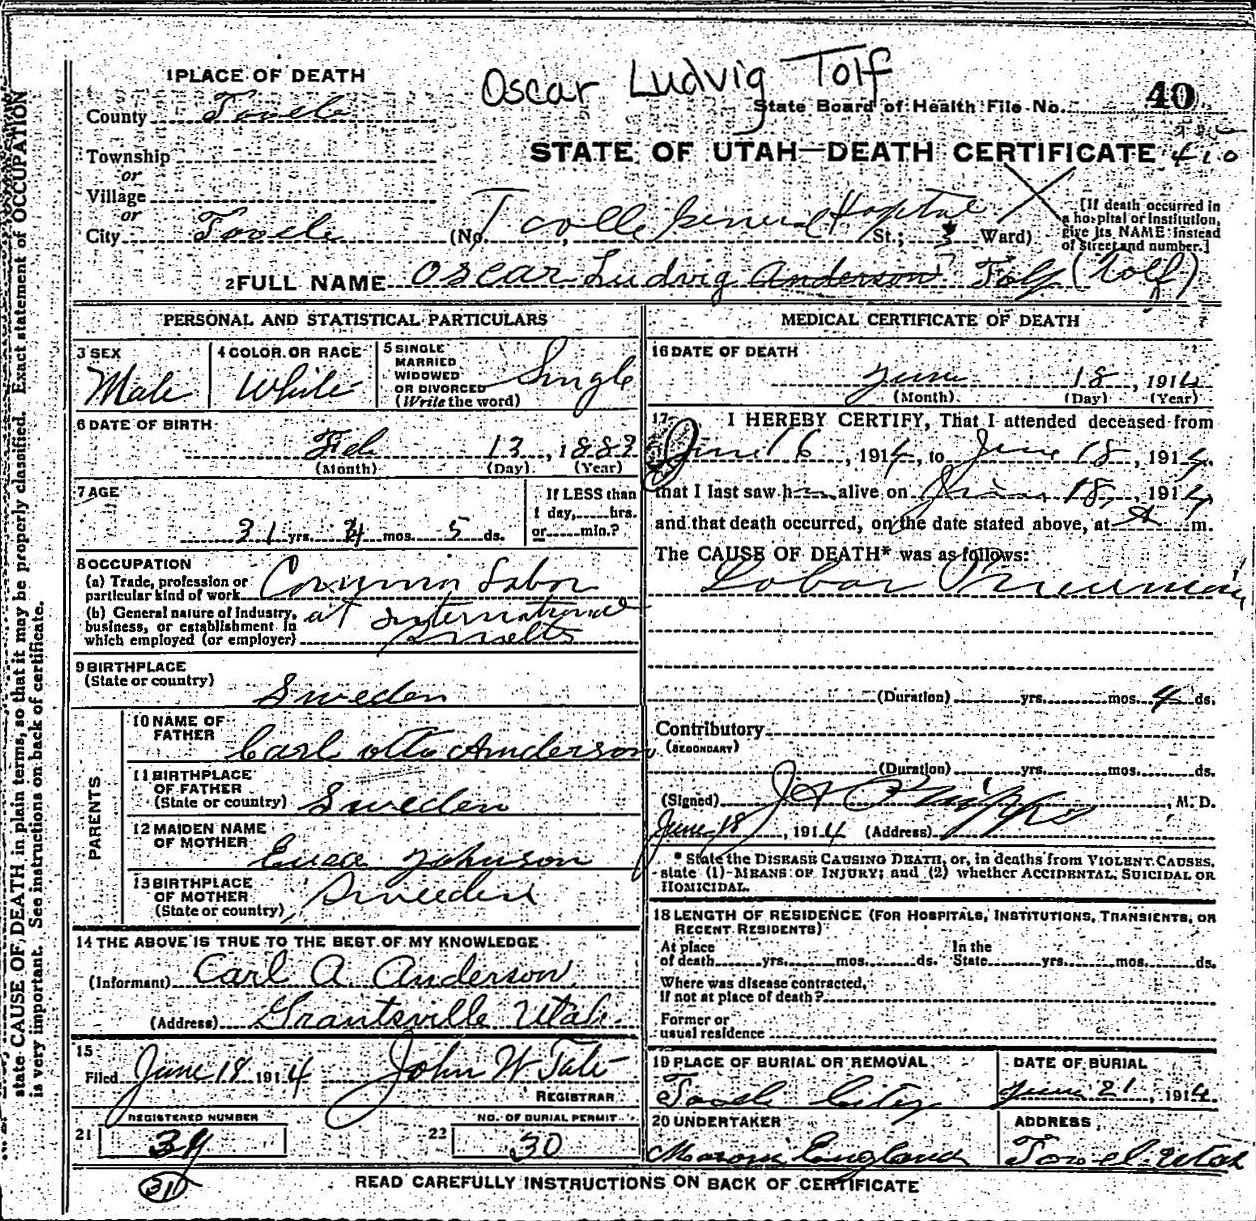 Oscar Ludvig Tolf
1 PLACE OF DEATH
State Board of Health File No. 40
County Tooele
STATE OF UTAH—DEATH CERTIFICATE 410
Township
or
Village
or
City Tooele (No. Tooele General Hospital St.; 3 Ward)
[If death occurred in
a hospital or institution,
give its NAME instead
of street and number.]
2 FULL NAME Oscar Ludvig Anderson Tolf (Tolf)
PERSONAL AND STATISTICAL PARTICULARS
3 SEX
Male
4 COLOR OR RACE
White
5 SINGLE
MARRIED
WIDOWED
OR DIVORCED
(Write the word)
Single
6 DATE OF BIRTH
Feb 13, 1883
(Month) (Day) (Year)
7 AGE
31 yrs. 4 mos. 5 ds.
If LESS than
1 day,......hrs.
or......min.?
8 OCCUPATION
(a) Trade, profession or
particular kind of work Common Labor
(b) General nature of Industry,
business, or establishment in
which employed (or employer)
at International
Smelts
9 BIRTHPLACE
(State or country)
Sweden
PARENTS
10 NAME OF
FATHER
Carl Otto Anderson
11 BIRTHPLACE
OF FATHER
(State or country) Sweden
12 MAIDEN NAME
OF MOTHER
Johnson
13 BIRTHPLACE
OF MOTHER
(State or country)
Sweden
14 THE ABOVE IS TRUE TO THE BEST OF MY KNOWLEDGE
(Informant) Carl A Anderson
(Address) Grantsville Utah.
15
Filed June 18 1914 John W Tate
REGISTRAR
REGISTERED NUMBER
21 34
31
NO. OF BURIAL PERMIT
22 30
MEDICAL CERTIFICATE OF DEATH
16 DATE OF DEATH
June 18, 1914
(Month) (Day) (Year)
17 I HEREBY CERTIFY, That I attended deceased from
June 16, 1914, to June 18, 1914,
that I last saw h alive on June 18, 1914
and that death occurred, on the date stated above, at A m.
The CAUSE OF DEATH* was as follows:
Lobar Pneumonia
(Duration) yrs. mos. 4 ds.
Contributory
(SECONDARY)
(Duration) yrs. mos. ds.
(Signed) J A Phipps, M. D.
June 18, 1914 (Address)
* State the DISEASE CAUSING DEATH, or, in deaths from VIOLENT CAUSES,
state (1) MEANS OF INJURY; and (2) whether ACCIDENTAL, SUICIDAL OR
HOMICIDAL.
18 LENGTH OF RESIDENCE (FOR HOSPITALS, INSTITUTIONS, TRANSIENTS, OR
RECENT RESIDENTS)
At place
of death yrs. mos. ds.
In the
State yrs. mos. ds.
Where was disease contracted,
If not at place of death?
Former or
usual residence
19 PLACE OF BURIAL OR REMOVAL
Tooele City
DATE OF BURIAL
June 21, 1914
20 UNDERTAKER
Maroni England
ADDRESS
Tooel Utah
READ CAREFULLY INSTRUCTIONS ON BACK OF CERTIFICATE
state CAUSE OF DEATH in plain terms, so that it may be properly classified. Exact statement of OCCUPATION
is very important. See instructions on back of certificate.